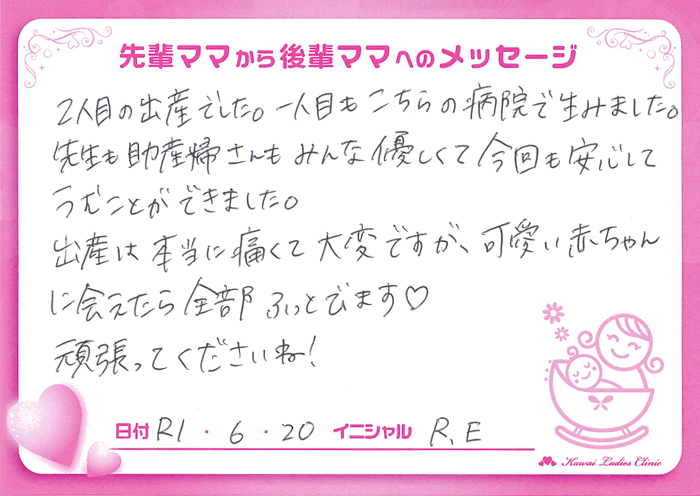 先輩ママから後輩ママへのメッセージ
2人目の出産でした。一人目もこちらの病院で生みました。
先生も助産婦さんもみんな優しくて今回も安心して
うむことができました。
出産は本当に痛くて大変ですが、可愛い赤ちゃん
に会えたら全部ふっとびます♡
頑張ってくださいね!
日付 R1・6・20 イニシャル R.E
Kawai Ladies Clinic